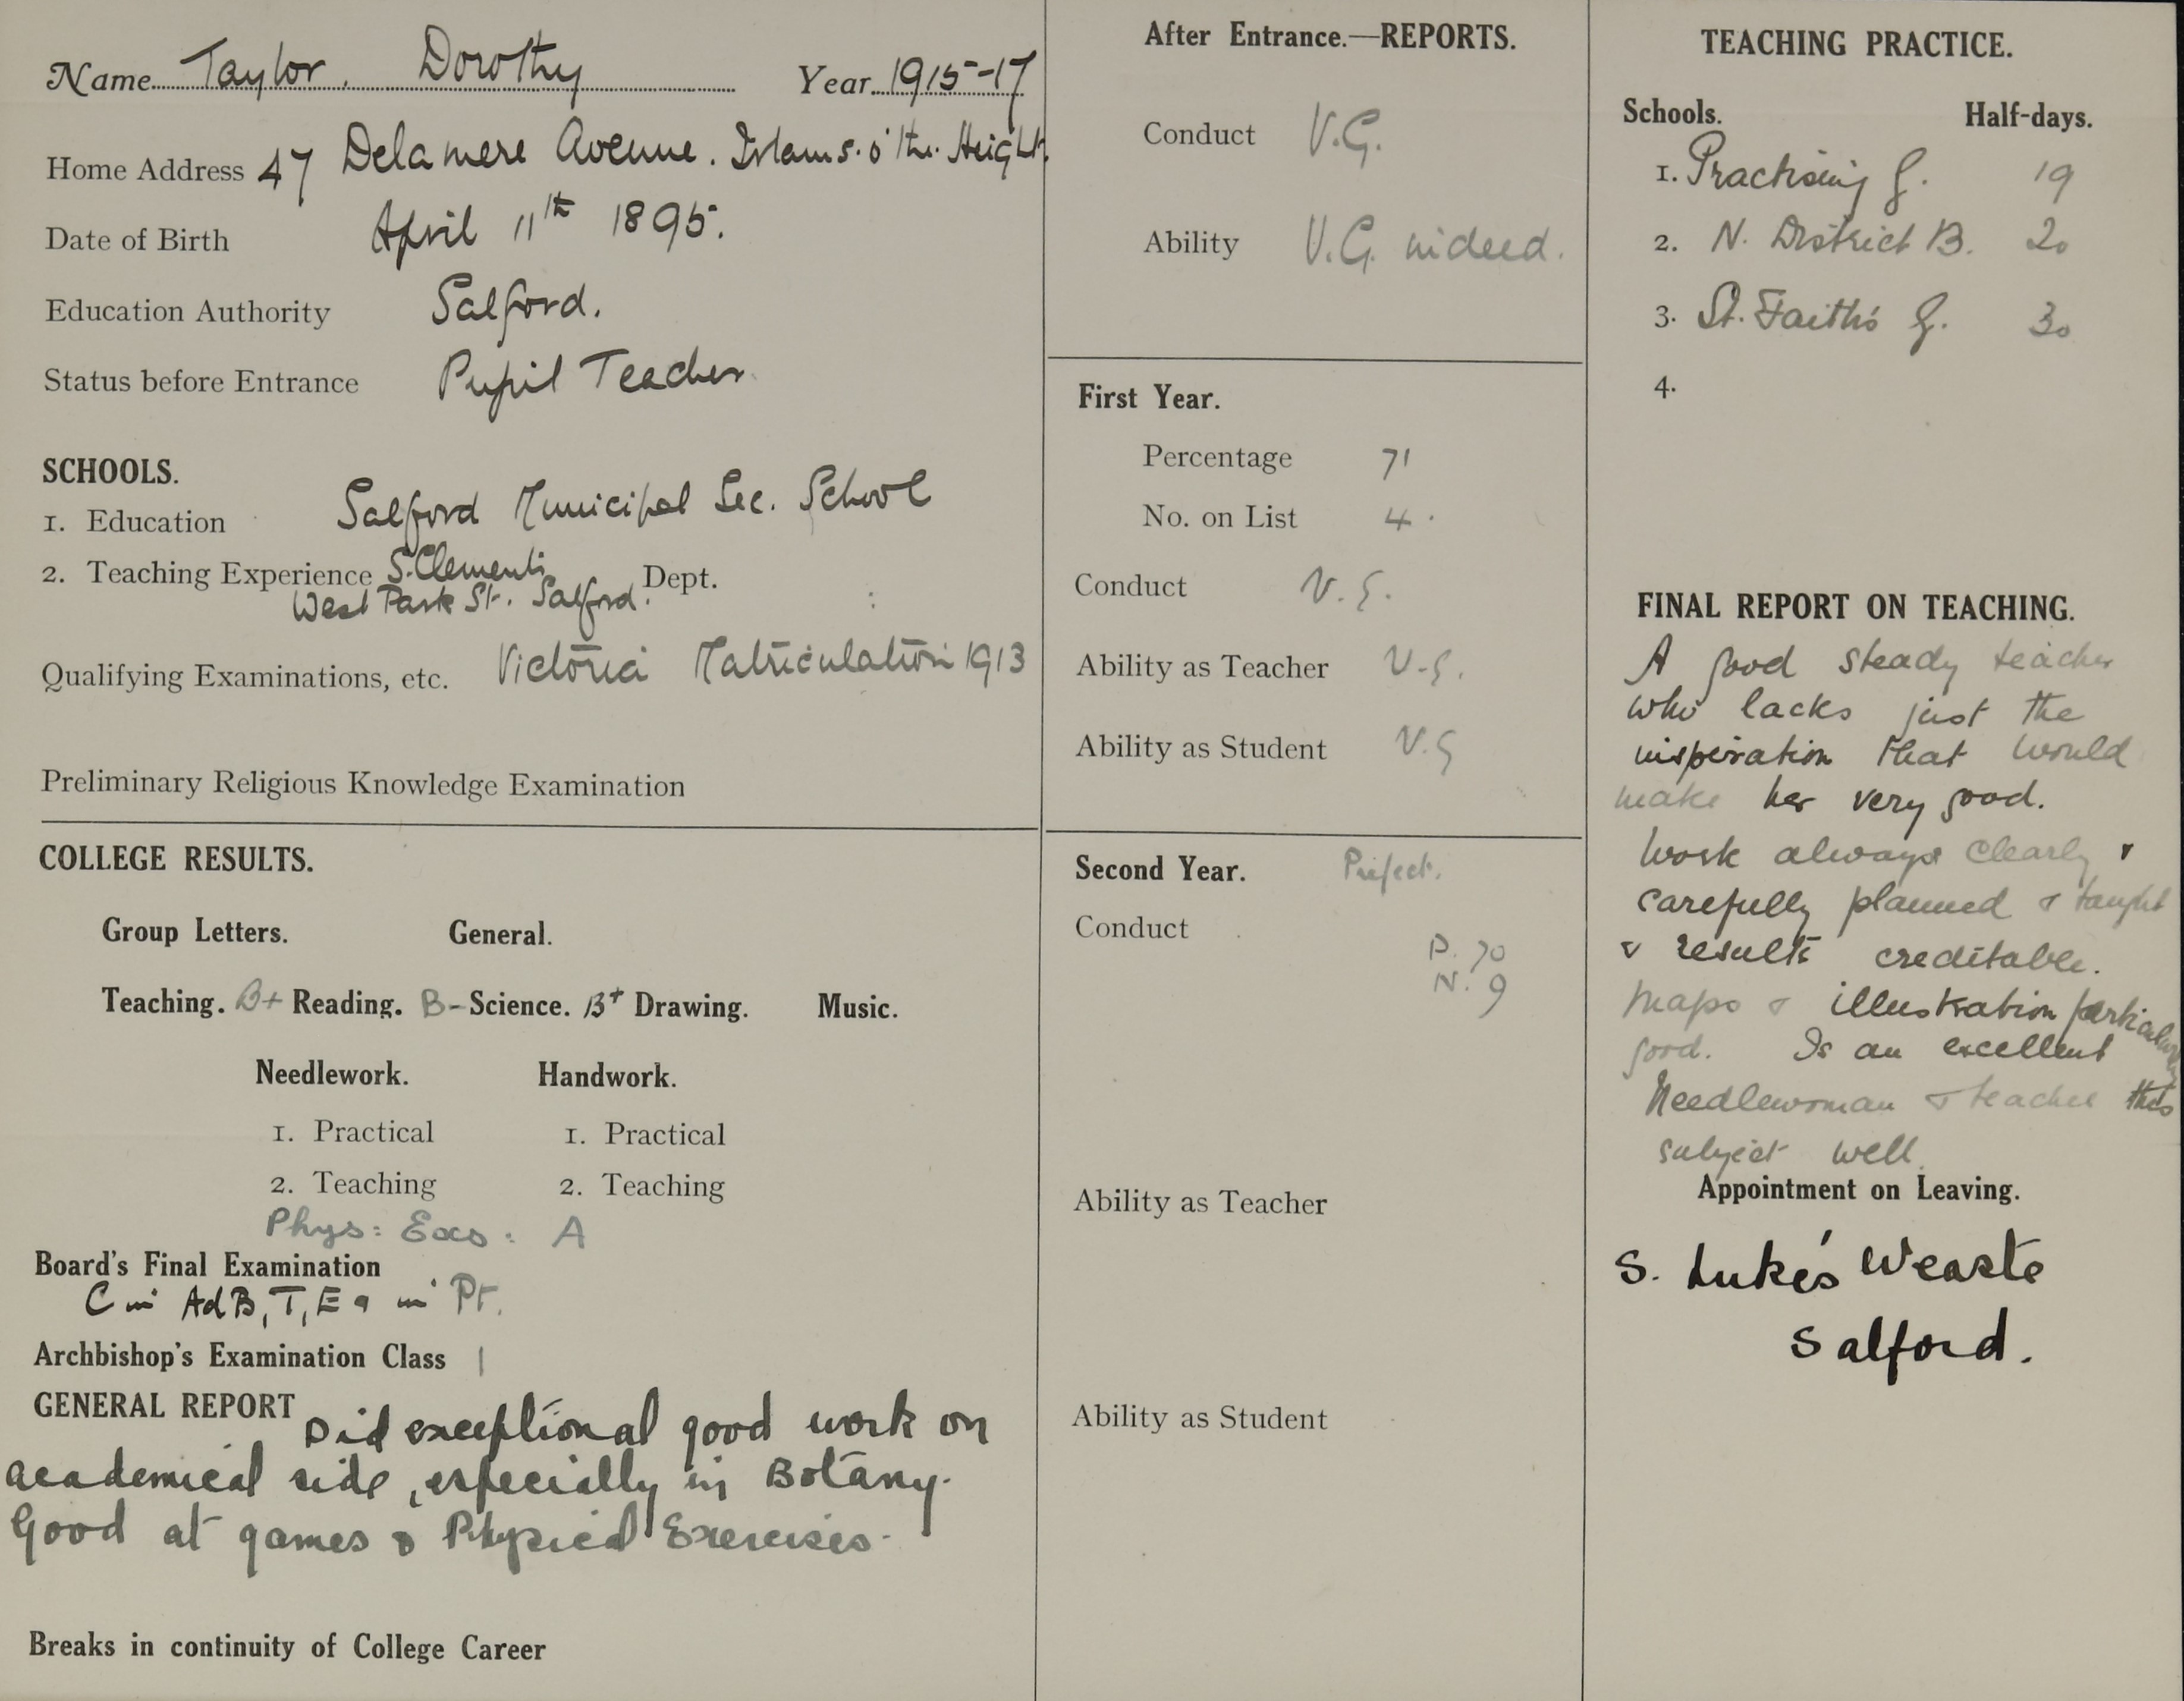 Name Taylor. Dorothy Year 1915-17
Home Address 47 Delamere Avenue. Irlams. o' the. Height.
Date of Birth April 11th 1895.
Education Authority Salford.
Status before Entrance Pupil Teacher.
SCHOOLS.
1. Education Salford Municipal Sec. School
2. Teaching Experience S. Clements Dept.
West Park St. Salford.
Qualifying Examinations, etc. Victoria Matriculation 1913
Preliminary Religious Knowledge Examination
COLLEGE RESULTS.
Group Letters. General.
Teaching. B+ Reading. B- Science. B+ Drawing. Music.
Needlework. Handwork.
1. Practical 1. Practical
2. Teaching 2. Teaching
Phys: Exs: A
Board's Final Examination
C in Ad B, T, E a in Pt.
Archbishop's Examination Class 1
GENERAL REPORT Did exceptional good work on
academical side, especially in Botany.
Good at games & Physical Exercises.
Breaks in continuity of College Career
After Entrance.—REPORTS.
Conduct V.G.
Ability V.G. indeed.
First Year.
Percentage 71
No. on List 4.
Conduct V.G.
Ability as Teacher V.G.
Ability as Student V.G
Second Year. Prefect.
Conduct
P. 70
N. 9
Ability as Teacher
Ability as Student
TEACHING PRACTICE.
Schools. Half-days.
1. Practising G. 19
2. N. District B. 20
3. St. Faith's G. 30
4.
FINAL REPORT ON TEACHING.
A good steady teacher
who lacks just the
inspiration that would
make her very good.
Work always clearly &
carefully planned & taught
& results creditable.
Maps & illustration particularly
good. Is an excellent
Needlewoman & teaches this
subject well.
Appointment on Leaving.
S. Luke's Weaste
Salford.